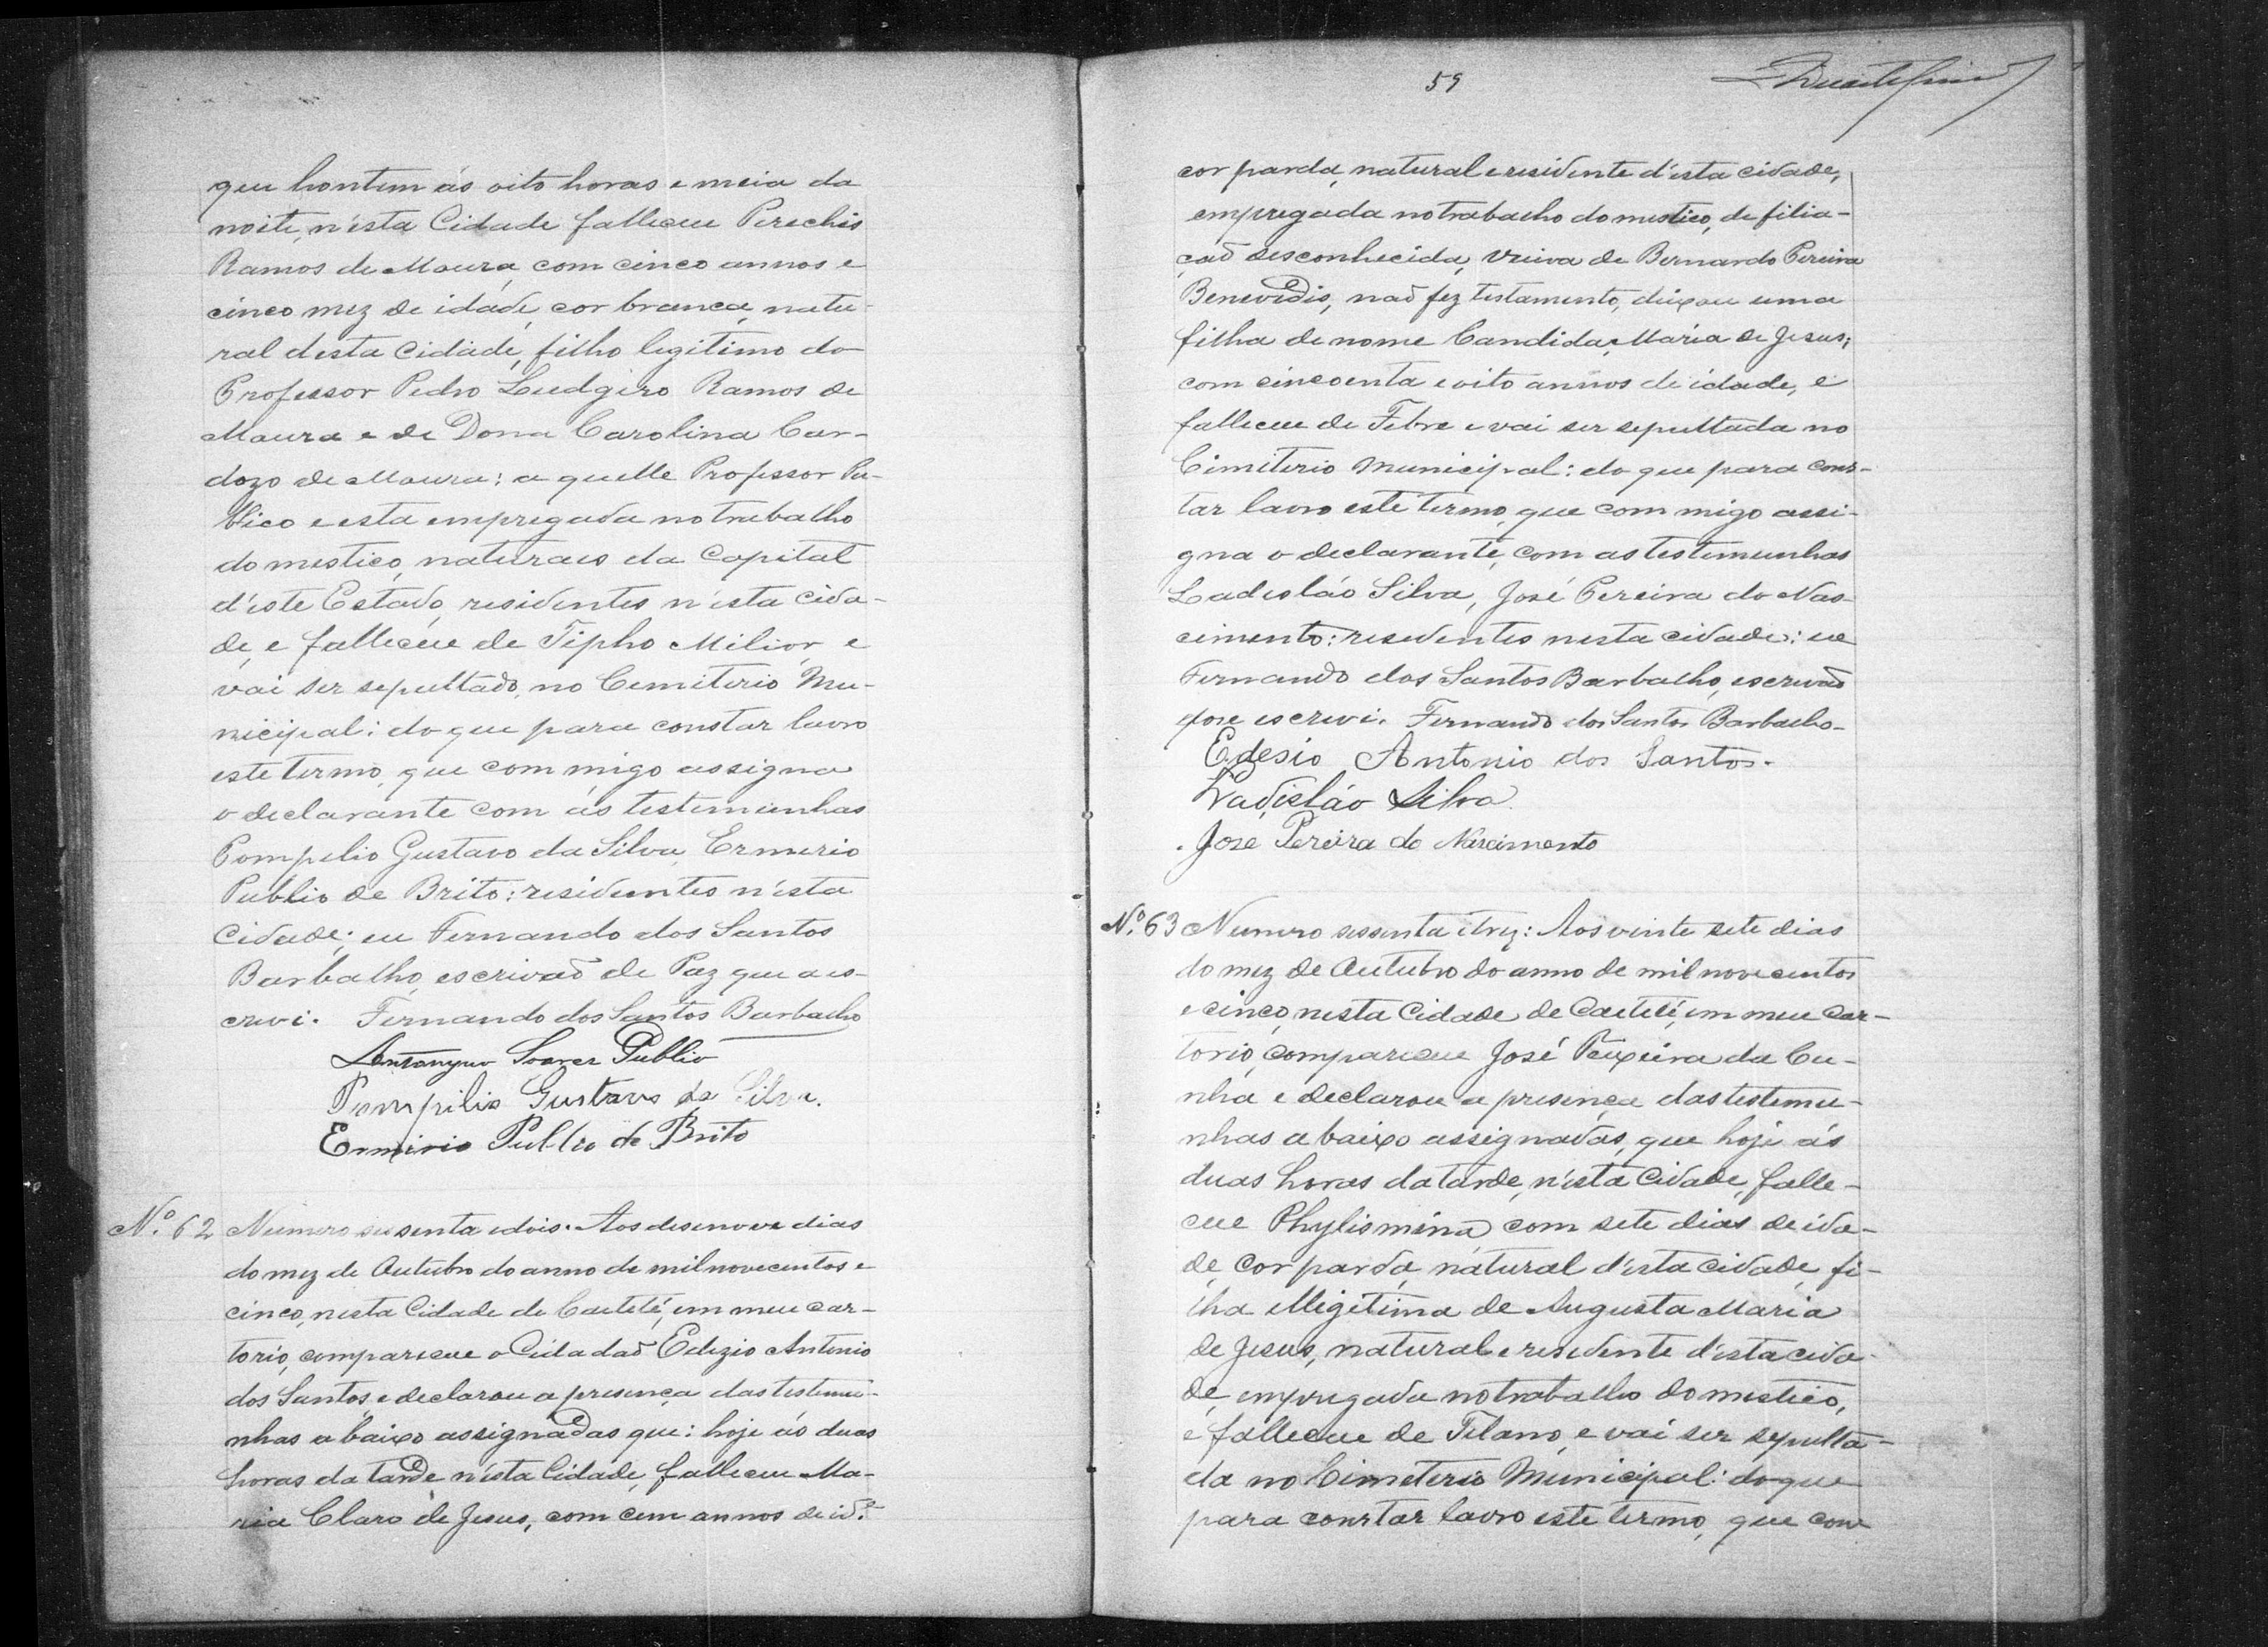 que hontem ás oito horas e meia da
noite, n'esta Cidade falleceu Perechis
Ramos de Moura, com cinco annos e
cinco mez de idade, cor branca, natu-
ral desta Cidade, filho legitimo do
Professor Pedro Ludgero Ramos de
Moura e de Dona Carolina Car-
dozo de Moura: a quelle Professor Pu-
blico e esta empregada no trabalho
domestico, naturaes da Capital
d'este Estado, residentes n'esta cida-
de, e falleceu de Tipho Milior, e
vai ser sepultado, no Cemiterio Mu-
nicipal: do que para constar lavro
este termo, que com migo assigna
o declarante com as testemunhas
Pompilio Gustavo da Silva, Ermerio
Publio de Brito: residentes n'esta
Cidade; eu Fernando dos Santos
Barbalho, escrivaõ de Paz que a es-
crevi. Fernando dos Santos Barbalho
Soares Publio
Pompilio Gustavo da Silva.
Ermirio Publio de Brito
N.º 62 Numero sessenta e dois. Aos desenove dias
do mez de Outubro do anno de mil novecentos e
cinco, nesta Cidade de Caeteté, em meu car-
torio, compareceu o Cidadaõ Edezio Antonio
dos Santos, e declarou a presença das testemu-
nhas a baixo assignadas que: hoje ás duas
horas da tarde n'esta Cidade, falleceu Ma-
ria Clara de Jesus, com cem annos de id.e
59
cor parda, natural e residente d'esta cidade,
empregada no trabalho domestico, de filia-
çaõ desconhecida, viuva de Bernardo Pereira
Benevidis, naõ fez testamento, deixou uma
filha de nome Candida Maria de Jesus;
com cincoenta e oito annos de idade, e
falleceu de Febre e vai ser sepultada no
Cimiterio Municipal: do que para cons-
tar lavro este termo, que com migo assi-
gna o declarante, com as testemunhas
Ladisláo Silva, José Pereira do Nas-
cimento: residentes nesta cidade: eu
Fernando dos Santos Barbalho, escrivaõ
que escrevi. Fernando dos Santos Barbalho
Edesio Antonio dos Santos.
Ladisláo Silva
José Pereira do Nascimento
N.º 63 Numero sessenta e trez: Aos vinte sete dias
do mez de Outubro do anno de mil novecentos
e cinco, nesta Cidade de Caeteté, em meu car-
torio, compareceu José Teixeira da Cu-
nha e declarou a presença das testemu-
nhas a baixo assignadas, que hoje ás
duas horas da tarde, n'esta Cidade, falle-
ceu Phylismina, com sete dias de ida-
de, cor parda, natural d'esta cidade, fi-
lha illigitima de Augusta Maria
de Jesus, natural e residente d'esta cida-
de, empregada no trabalho domestico,
e falleceu de Tétano, e vai ser sepulta-
da no Cimeterio Municipal: do que
para constar lavro este termo, que com